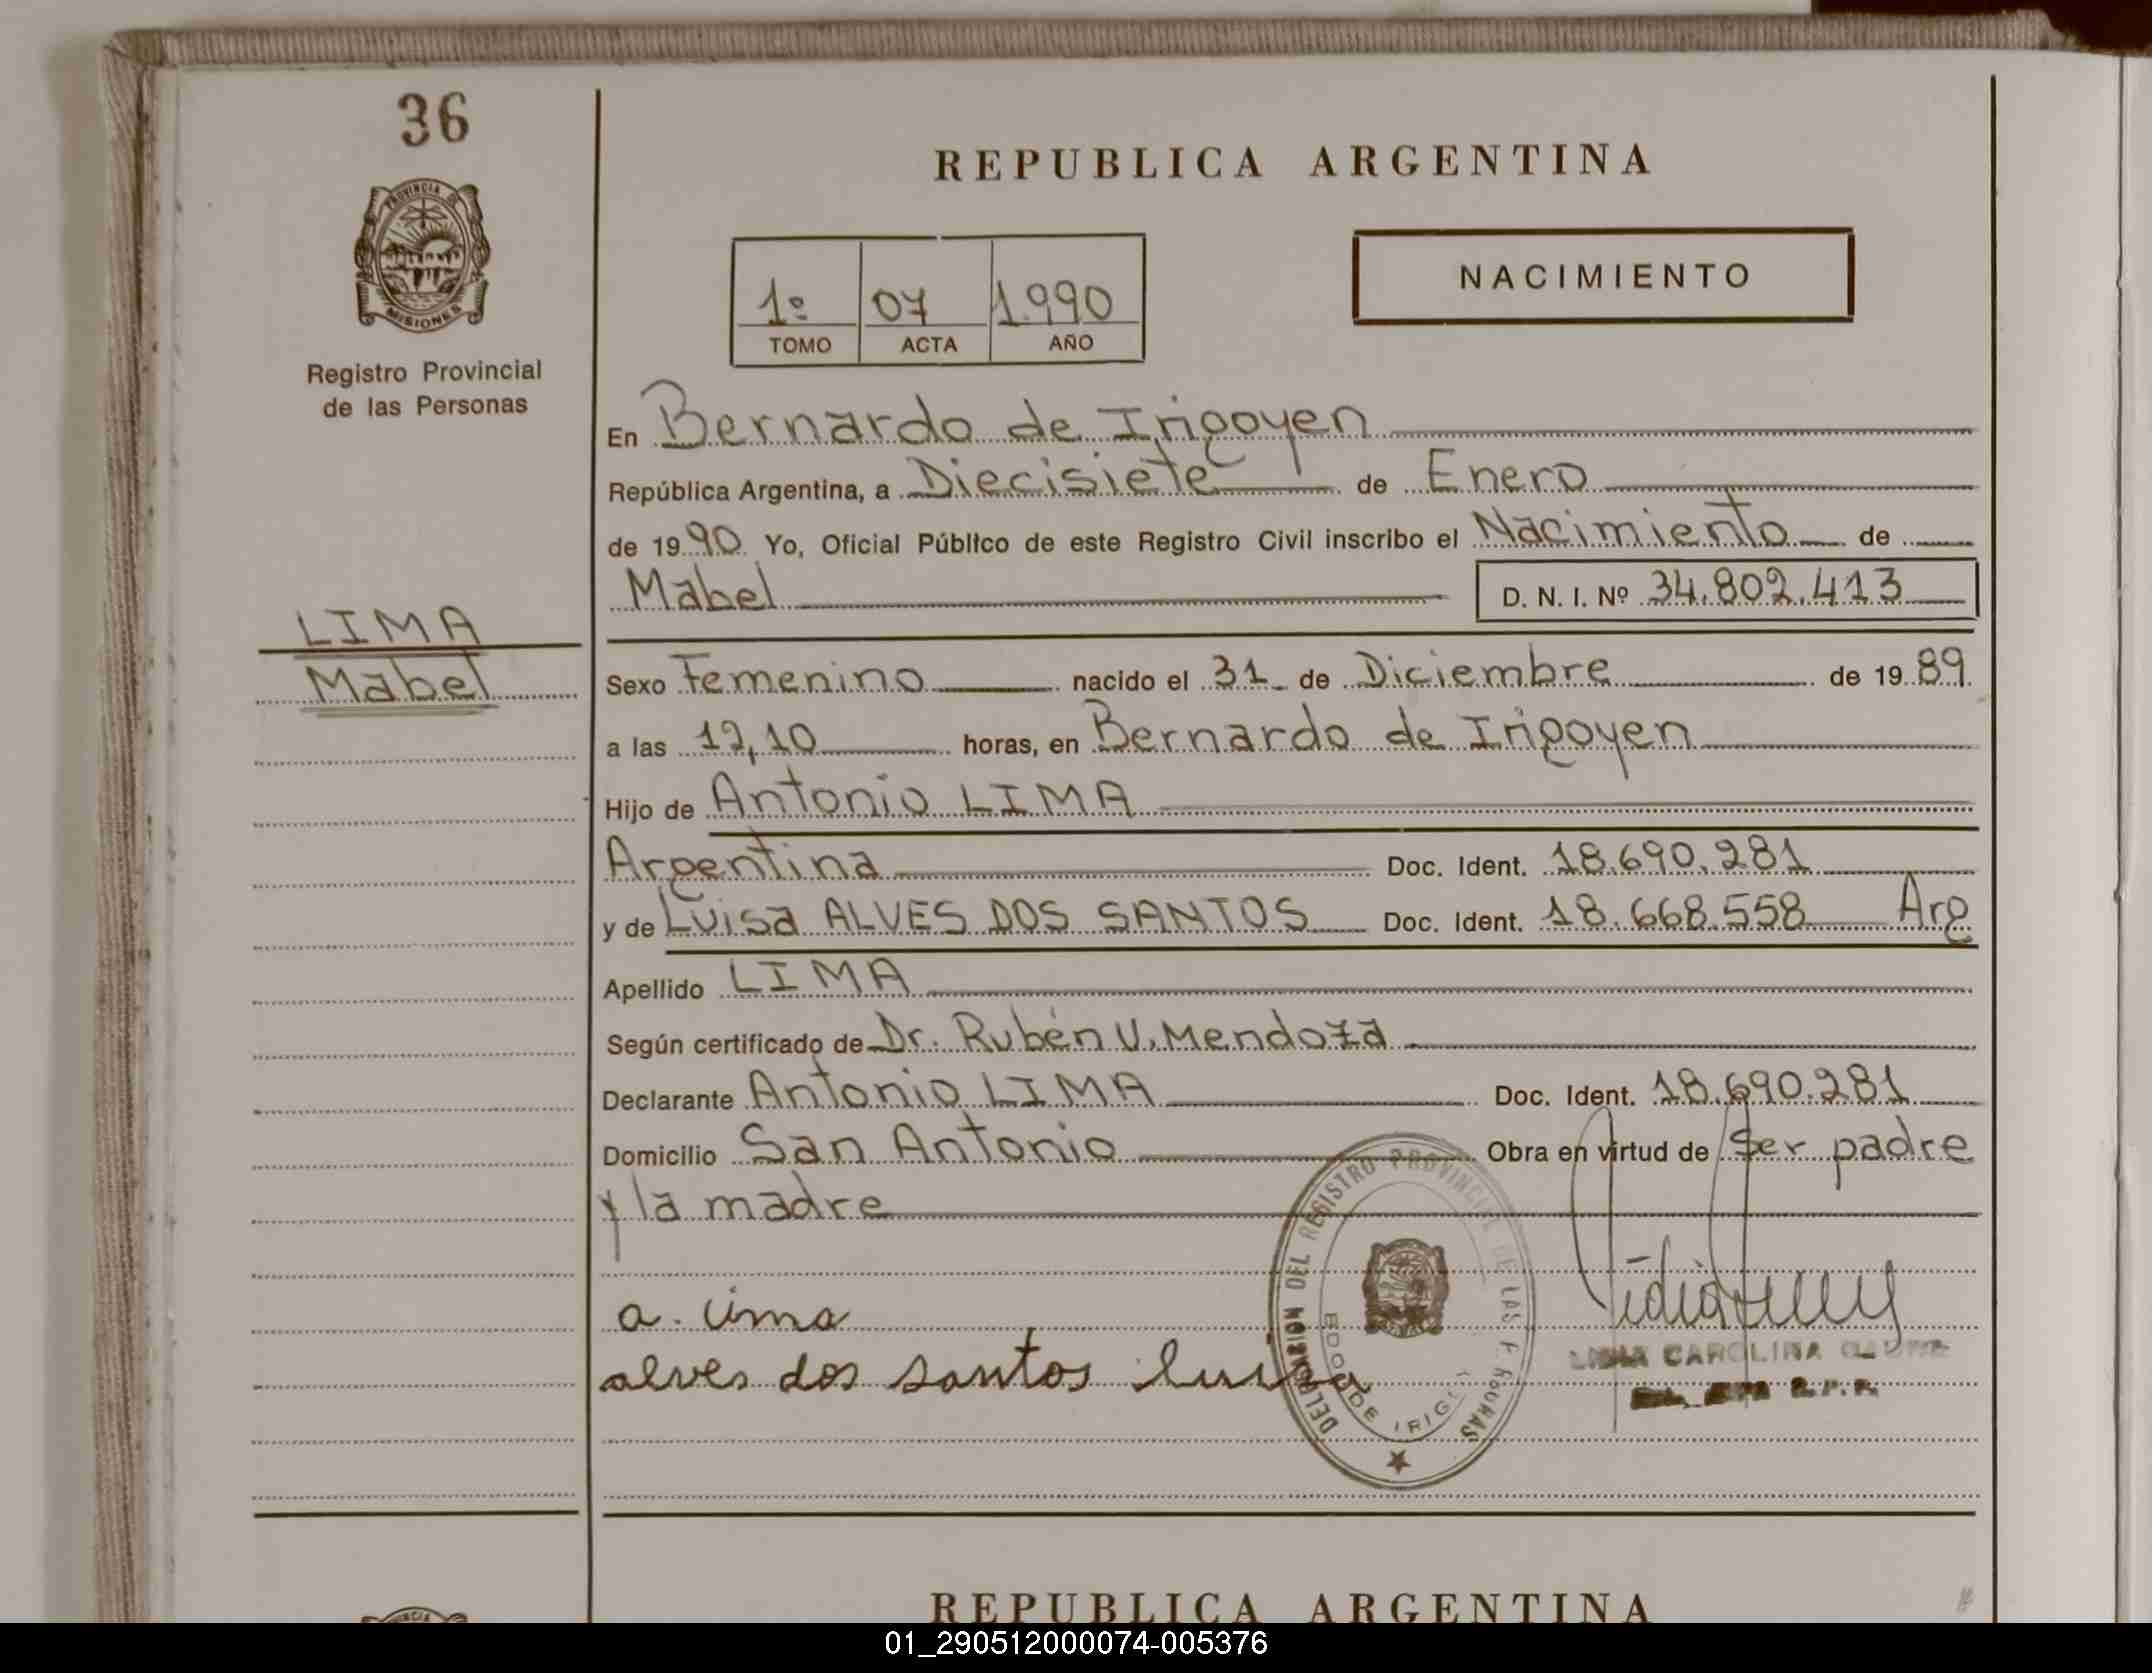 36
REPUBLICA ARGENTINA
PROVINCIA DE
MISIONES
Registro Provincial
de las Personas
NACIMIENTO
1º 07 1.990
TOMO ACTA AÑO
En Bernardo de Irigoyen
República Argentina, a Diecisiete de Enero
de 1990 Yo, Oficial Público de este Registro Civil inscribo el Nacimiento de
Mabel D. N. I. Nº 34.802.413
LIMA
Mabel
Sexo Femenino nacido el 31 de Diciembre de 1989
a las 12,10 horas, en Bernardo de Irigoyen
Hijo de Antonio LIMA
Argentina Doc. Ident. 18.690.281
y de Luisa ALVES DOS SANTOS Doc. Ident. 18.668.558 Arg
Apellido LIMA
Según certificado de Dr. Rubén V. Mendoza
Declarante Antonio LIMA Doc. Ident. 18.690.281
Domicilio San Antonio Obra en virtud de ser padre
y la madre
a. Lima
alves dos santos luisa
DELEGACION DEL REGISTRO PROVINCIAL DE LAS PERSONAS
BDO. DE IRIG
CAROLINA
REPUBLICA ARGENTINA
01_290512000074-005376